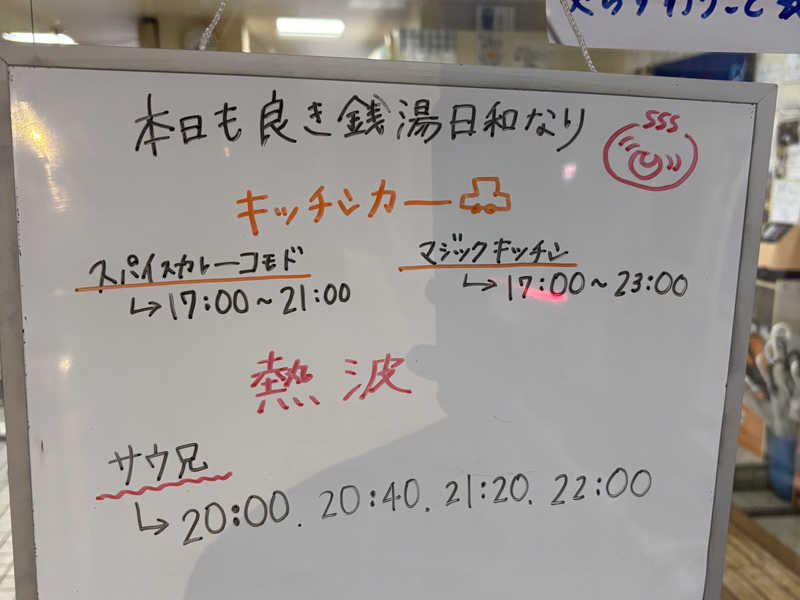 本日も良き銭湯日和なり
キッチンカー
スパイスカレーコモド
↳17:00~21:00
マジックキッチン
↳17:00~23:00
熱波
サウ兄
↳20:00. 20:40. 21:20. 22:00